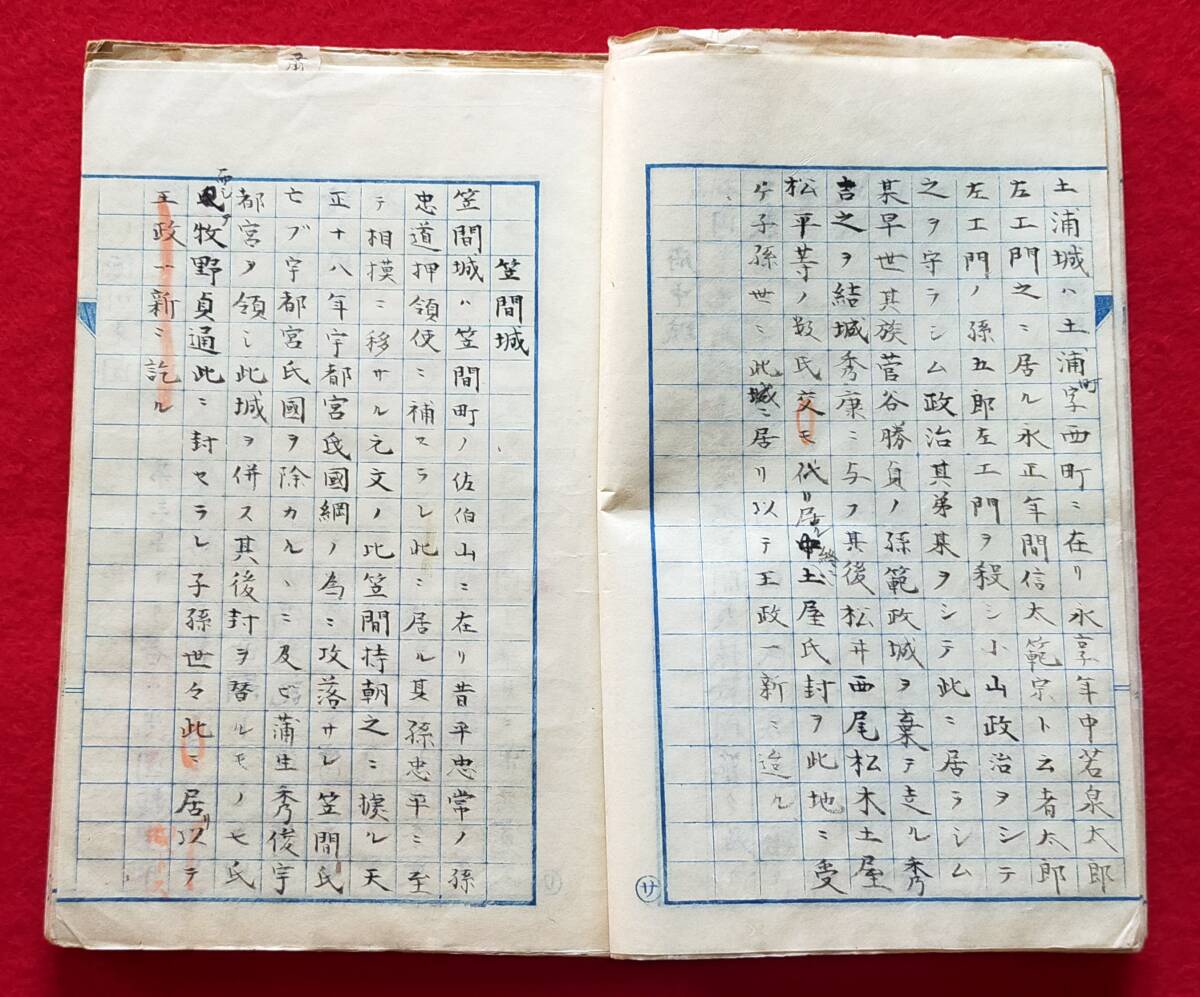 土浦城ハ土浦町字西町ニ在リ永享年中若泉太郎
左エ門之ニ居ル永正年間信太範宗ト云者太郎
左エ門ノ孫五郎左エ門ヲ殺シ小山政治ヲシテ
之ヲ守ラシム政治其弟某ヲシテ此ニ居ラシム
某早世其族菅谷勝貞ノ孫範政城ヲ棄テ走ル秀
吉之ヲ結城秀康ニ与フ其後松井西尾松木土屋
松平等ノ数氏交モ代リ居ル終ニ土屋氏封ヲ此地ニ受
ケ子孫世ニ此城ニ居リ以テ王政一新ニ迨ル
サ
笠間城
笠間城ハ笠間町ノ佐伯山ニ在リ昔平忠常ノ孫
忠道押領使ニ補セラレ此ニ居ル其孫忠平ニ至
テ相模ニ移サル元文ノ比笠間持朝之ニ拠ル天
正十八年宇都宮氏國綱ノ為ニ攻落サレ笠間氏
亡ブ宇都宮氏國ヲ除カルヽニ及ビ蒲生秀俊宇
都宮ヲ領シ此城ヲ併ス其後封ヲ替ルモノ七氏
而シテ牧野貞通此ニ封セラレ子孫世々此ニ居リ以テ
王政一新ニ訖ル